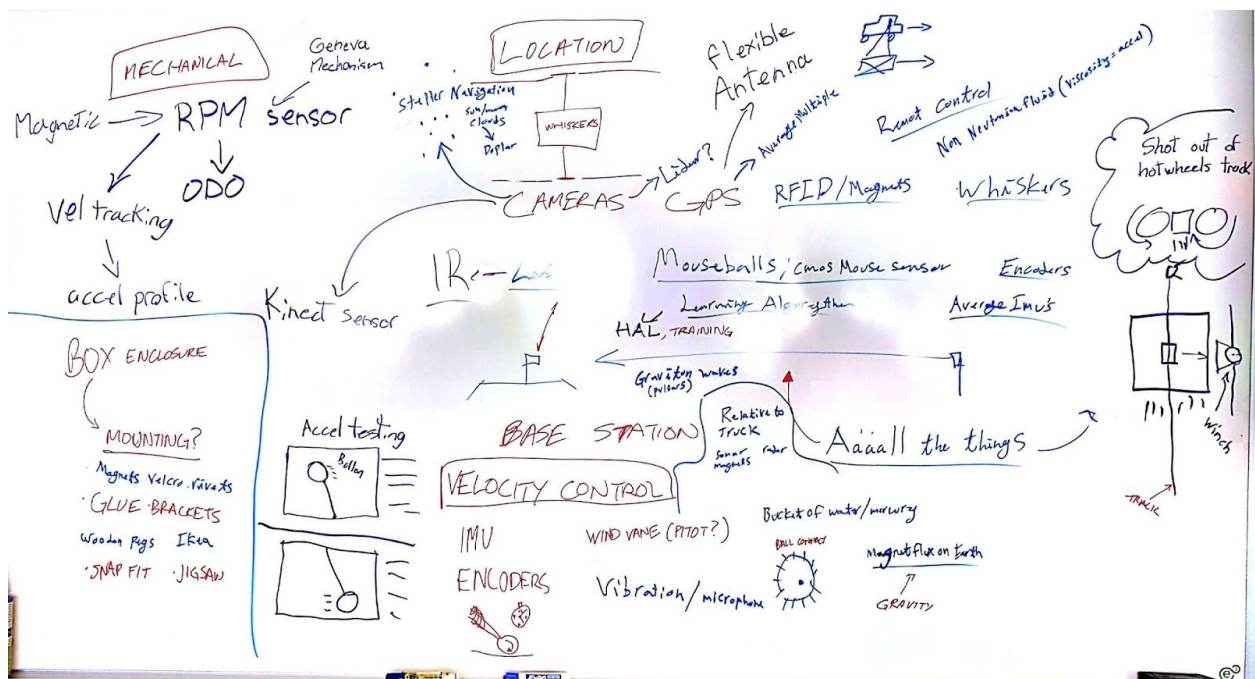 MECHANICAL
Geneva
Mechanism
Magnetic
RPM sensor
ODO
Vel tracking
accel profile
LOCATION
Steller Navigation
sun/moon
clouds
Doplar
WHISKERS
CAMERAS
Lidar?
GPS
flexible
Antenna
Average Multiple
Remot Control
Non Neutonian fluid (viscosity = accel)
RFID/Magnets
Whiskers
Shot out of
hotwheels track
Kinect sensor
IR
Mouseballs, cmos Mouse sensor
Encoders
Learning Algorythm
HAL, TRAINING
Average Imu's
Graviton wakes
(pulsars)
BOX ENCLOSURE
MOUNTING?
Magnets Velcro. rivets
· GLUE · BRACKETS
Wooden Pegs Ikea
· SNAP FIT · JIGSAW
Accel testing
Ballon
BASE STATION
Relative to
Truck
sonar radar
magnets
Aääall the things
Winch
TRUCK
VELOCITY CONTROL
IMU
ENCODERS
WIND VANE (PITOT?)
Vibration/microphone
Bucket of water/mercury
BALL CONTACT
Magnet flux on Earth
GRAVITY